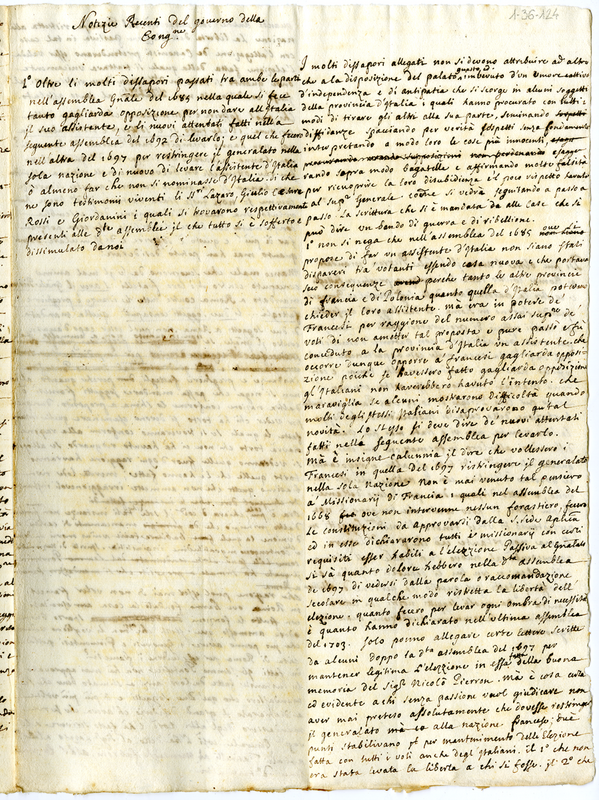 1-36-124
Notizie Recenti del governo della
Congne
1° Oltre li molti dissapori passati tra ambe le parti
nell'assemblea Gnale del 1685 nella quale si fece
tanto gagliarda opposizione per non dare all'Italia
il suo assistente, e li nuovi attentati fatti nella
seguente assemblea del 1692 di levarlo; e quel che fecero
nell'altra del 1697 per restringere il generalato nella
sola nazione e di nuovo di levare l'assistente d'Italia
ò almeno far che non si nominasse d'Italia. Si che
ne sono testimonij viventi li SSri Lazaro, Giulio Cesare
Rossi e Giordanini i quali si trovarono respettivamente
presenti alle dte assemblee il che tutto si è sofferto e
dissimulato da noi
I molti dissapori allegati non si devono attribuire ad altro
che a la disposizione del palato imbevuto d'un umore cattivo
d'independenza e di antipatia che si scorge in alcuni soggetti
della provincia d'Italia i quali hanno procurato con tutti i
modi di tirare gli altri alla sua parte, seminando
diffidenze spacciando per verità sospetti senza fondamento
interpretando a modo loro le cose più innocenti
rando sopra modo bagatelle e affirmando molte falsità
per ricuoprire la loro disubidienza e il poco rispetto havuto
al supre Generale come si vedrà seguitando a passo a
passo. La scrittura che si è mandata da alle case che si
può dire un bando di guerra e di ribellione.
1° non si nega che nell'assemblea del 1685 ove
propose di far un assistente d'Italia non siano stati
dispareri tra votanti essendo cosa nuova e che portava
sue conseguenze perche tanto le altre provincie
di francia e di Polonia quanto quella d'Italia potevano
chieder il loro assistente. ma era in potere de'
Francesi per raggione del numero assai supre de
voti di non ametter tal proposta e pure passò e fù
conceduto a la provincia d'Italia un assistente. che
occorre dunque opporre a Francesi gagliarda opposi-
zione poiche se havessero fatto gagliarda oppositione
gl'Italiani non haverebbero havuto l'intento. che
maraviglia se alcuni mostrarono difficoltà quando
molti degli stessi Italiani disaprovarono qu'tal
novità. Lo stesso si deve dire de' nuovi attentati
fatti nella seguente assemblea per levarlo.
Mà è insigne calunnia il dire che vollessero i
Francesi in quella del 1697 restringere il generalato
nella sola Nazione. Non è mai venuto tal pensiero
a' Missionarij di Francia i quali nel assemblea del
1668 ove non intervenne nessun forastiero, fecero
le constituzioni da approvarsi dalla S. sede Aplica
ed in esse dichiararono tutti i missionarij con certi
requisiti esser habili a l'elezzione passiva al Gnalato
si sà quanto dolore hebbero nella dta assemblea
de 1697 di vedersi dalla parola o racomandazione
secolare in qualche modo ristretta la libertà dell'
elezione, e quanto fecero per levar ogni ombra di necessità
è quanto hanno dichiarato nell'ultima assemblea
del 1703. Solo ponno allegare certe lettere scritte
da alcuni doppo la dta assemblea del 1697 per
mantener legitima l'elezzione in essa fatta della buona
memoria del Sigr Nicolò Pierron. Mà è cosa certa
ed evidente a chi senza passione vuol giudicare non
aver mai preteso assolutamente che dovesse restringer
il generalato alla nazione francese; due
punti stabilivano pr mantenimento della Elezione
fatta con tutti i voti anche degl'Italiani. il 1° che non
era stata levata la libertà a chi si fosse. il 2° che